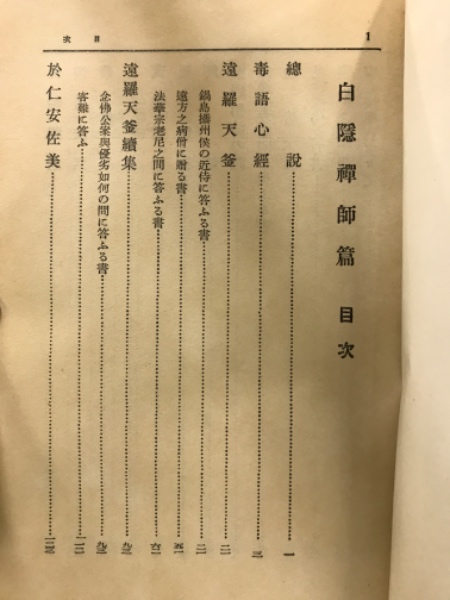 1
目次
白隱禪師篇 目次
總說……一
毒語心經……三
遠羅天釜
鍋島攝州侯の近侍に答ふる書
遠方之病僧に贈る書
法華宗老尼之問に答ふる書
遠羅天釜續集
念佛公案與優劣如何の問に答ふる書
客難に答ふ
於仁安佐美